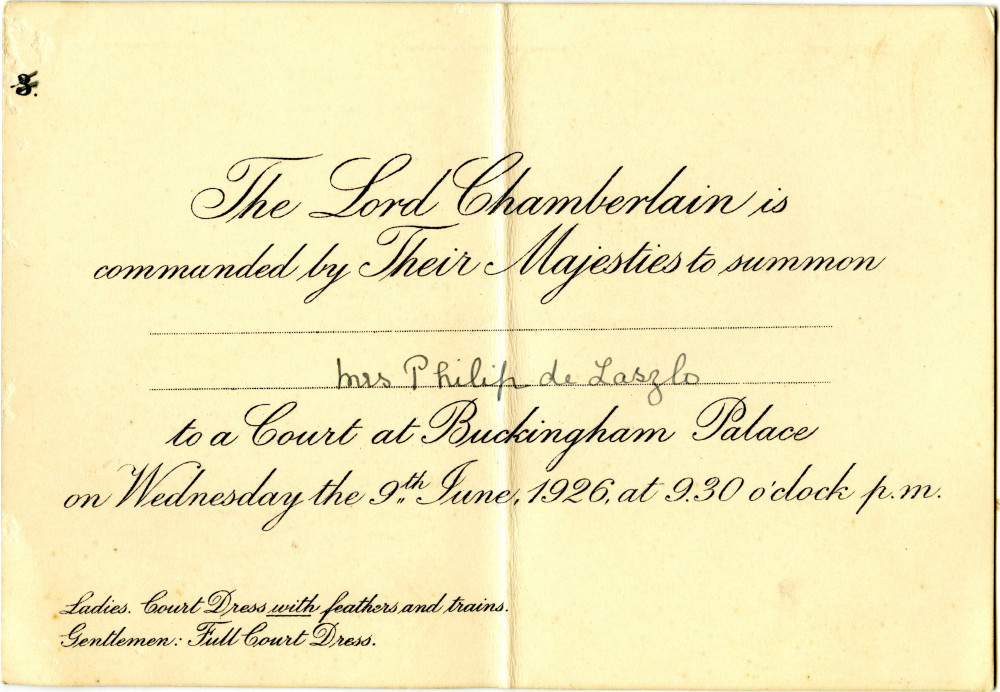 The Lord Chamberlain is
commanded by Their Majesties to summon
Mrs Philip de Laszlo
to a Court at Buckingham Palace
on Wednesday the 9th June, 1926, at 9.30 o'clock p.m.
Ladies. Court Dress with feathers and trains.
Gentlemen: Full Court Dress.